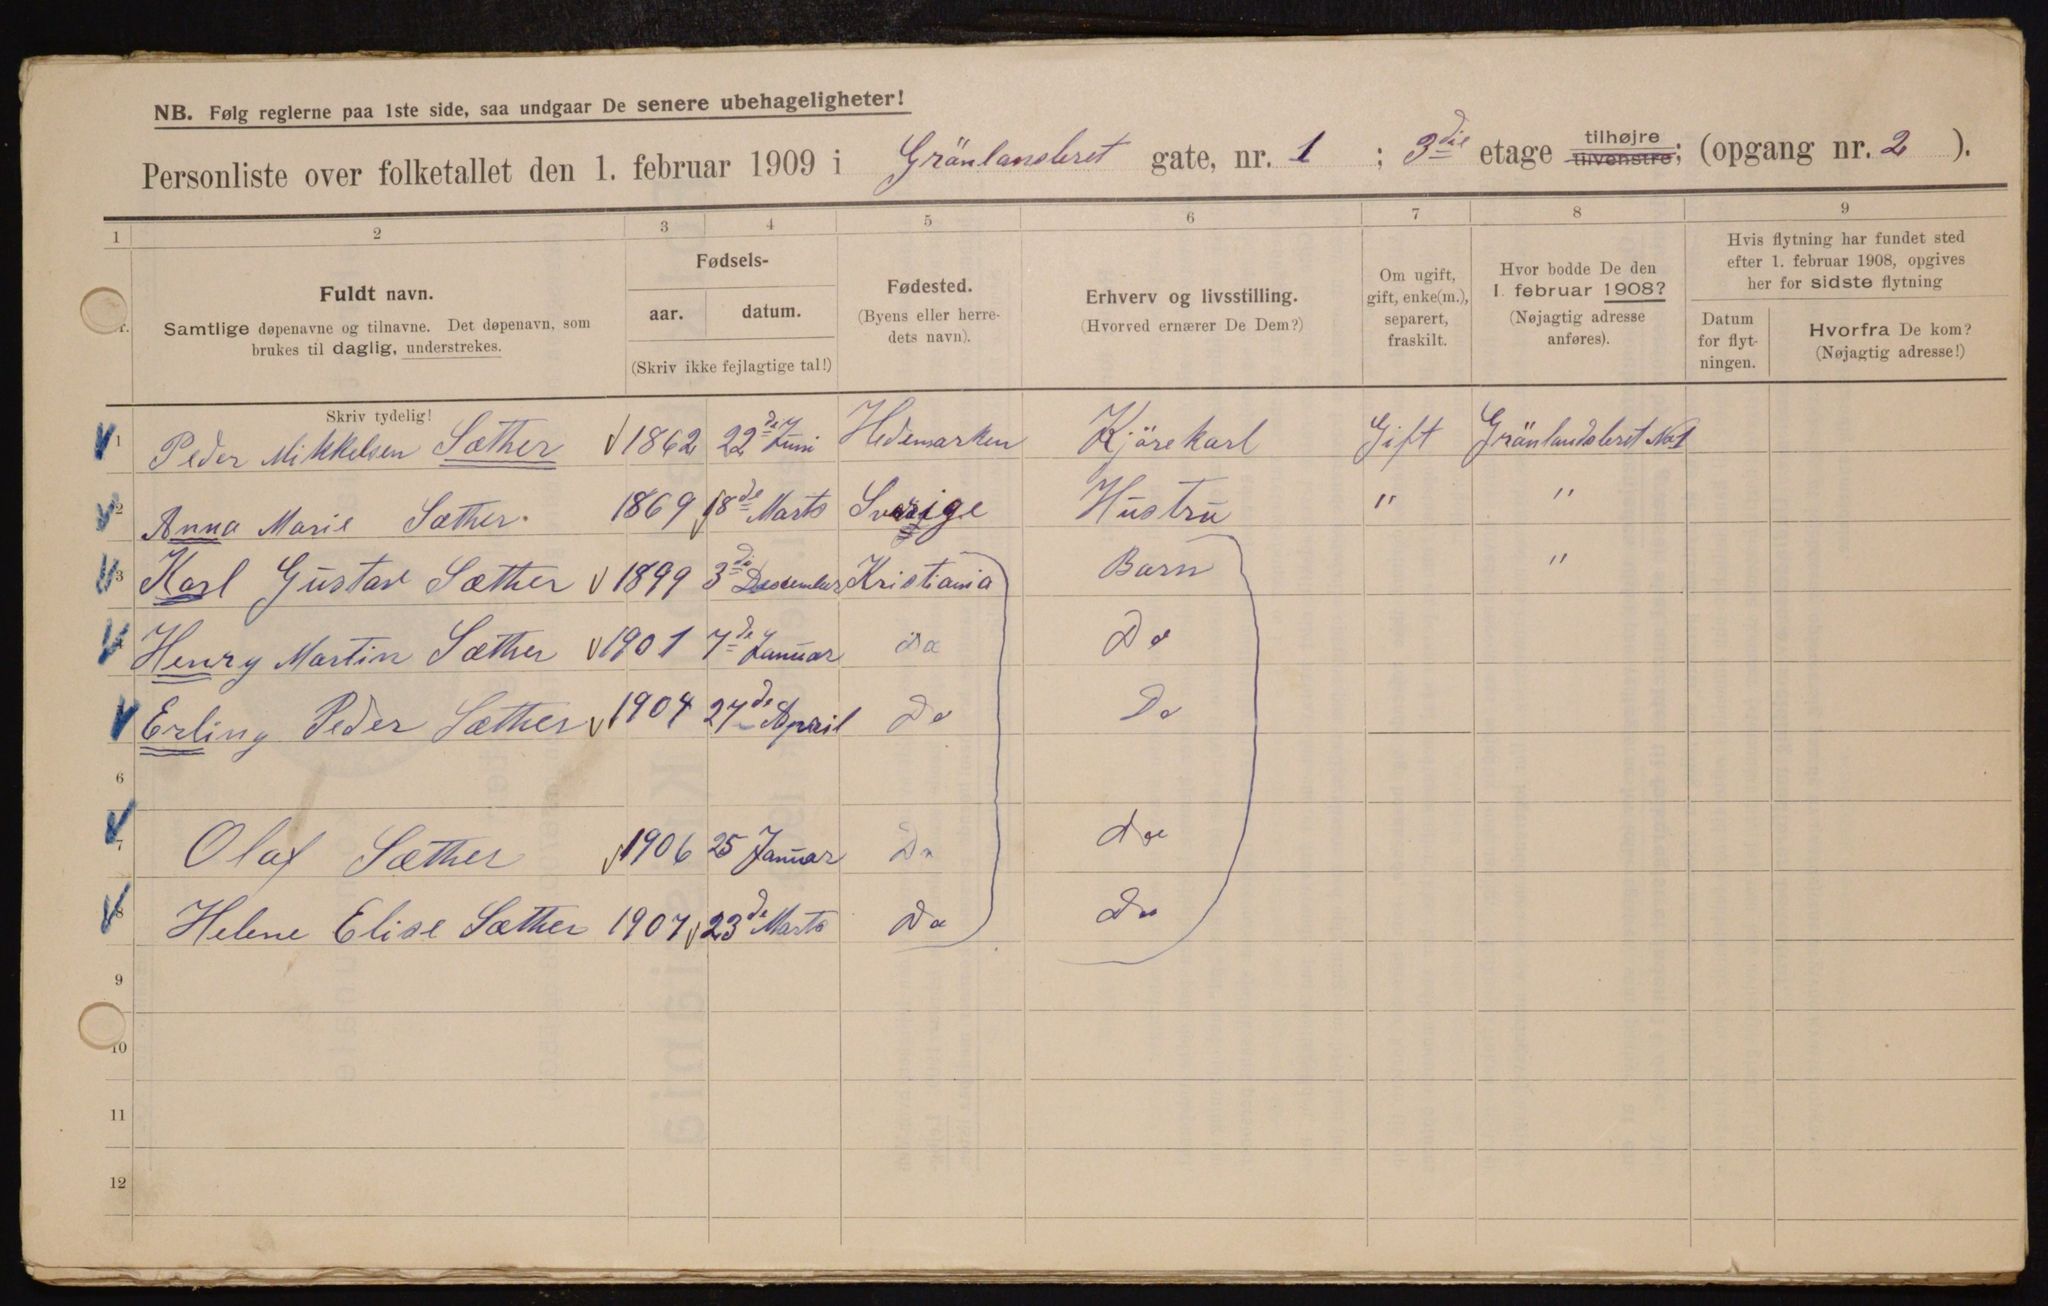 NB. Følg reglerne paa 1ste side, saa undgaar De senere ubehageligheter!
Personliste over folketallet den 1. februar 1909 i Grönlandsleret gate, nr. 1 ; 3die etage tilhøjre tilvenstre; (opgang nr. 2 ).
1 2 3 4 5 6 7 8 9
Fuldt navn.
Samtlige døpenavne og tilnavne. Det døpenavn, som
brukes til daglig, understrekes.
Skriv tydelig!
Fødsels-
aar. datum.
(Skriv ikke fejlagtige tal!)
Fødested.
(Byens eller herre-
dets navn).
Erhverv og livsstilling.
(Hvorved ernærer De Dem?)
Om ugift,
gift, enke(m.),
separert,
fraskilt.
Hvor bodde De den
1. februar 1908?
(Nøjagtig adresse
anføres).
Hvis flytning har fundet sted
efter 1. februar 1908, opgives
her for sidste flytning
Datum
for flyt-
ningen.
Hvorfra De kom?
(Nøjagtig adresse!)
1 Peder Mikkelsen Sæther 1862 22de Juni Hedemarken Kjörekarl Gift Grönlandsleret No 1
2 Anna Marie Sæther. 1869 18de Marts Sverige Hustru " "
3 Karl Gustav Sæther 1899 3die Desember Kristiania Barn "
Henry Martin Sæther 1901 7de Januar Do Do
Erling Peder Sæther 1904 27de April Do Do
6
7 Olaf Sæther 1906 25 Januar Do do
8 Helene Elise Sæther 1907 23de Marts Do Do
9
10
11
12